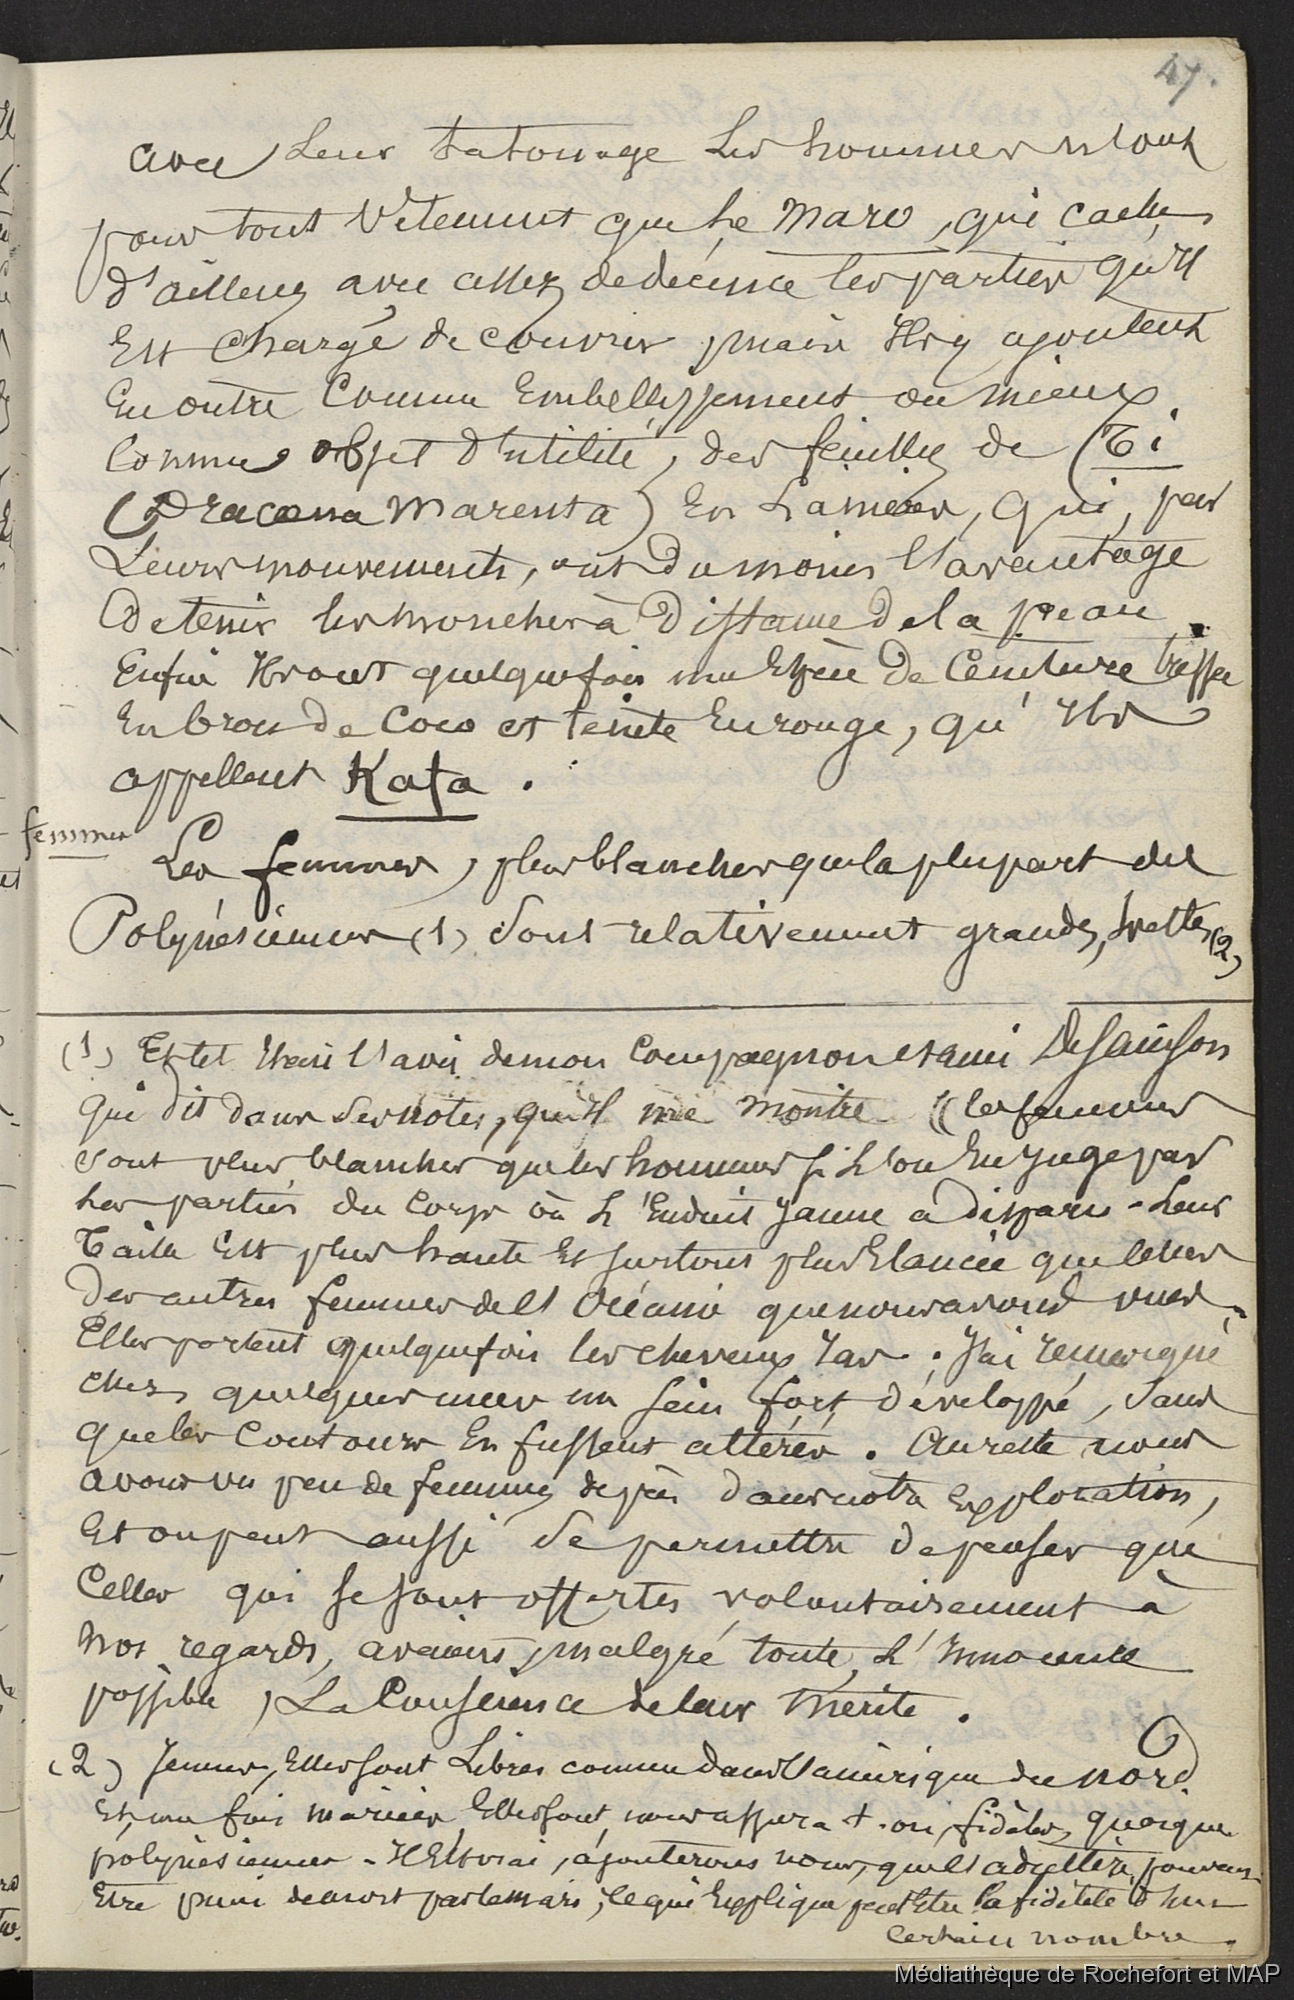 47.
avec leur tatouage les hommes n'ont
pour tout vêtement que le Maro, qui cache
d'ailleurs avec assez de décence les parties qu'il
est chargé de couvrir, mais ils y ajoutent
en outre comme embellissement ou mieux
comme objet d'utilité, des feuilles de Ti
(Dracæna Marenta) en lanières, qui, par
leurs mouvements, ont du moins l'avantage
de tenir les mouches à distance de la peau.
Enfin ils ont quelquefois une espèce de ceinture tressée
en brou de coco et teinte en rouge, qu'ils
appellent Kafa.
femmes
Les femmes, plus blanches que la plupart des
Polynésiennes (1) sont relativement grandes, sveltes (2)
(1) Et tel était l'avis de mon compagnon et ami Desainson
qui dit dans ses notes, qu'il me montre "les femmes
sont plus blanches que les hommes si l'on en juge par
les parties du corps où l'enduit jaune a disparu - leur
taille est plus haute et surtout plus élancée que celles
des autres femmes de l'Océanie que nous avons vues.
Elles portent quelquefois les cheveux ras. J'ai remarqué
chez quelques unes un sein fort développé, sans
que les contours en fussent altérés. Au reste nous
avons vu peu de femmes depuis dans notre exploration,
et on peut aussi se permettre de penser que
celles qui se sont offertes volontairement à
nos regards, avaient, malgré toute l'innocence
possible, la conscience de leur mérite.
(2) Jeunes, elles sont libres comme dans l'amérique du nord
et, une fois mariées elles sont, nous assura t-on, fidèles, quoique
polynésiennes - Il est vrai, ajouterons nous, que l'adultère pouvant
être puni de mort par le mari, ce qui explique peut être la fidélité d'un
certain nombre.
Médiathèque de Rochefort et MAP